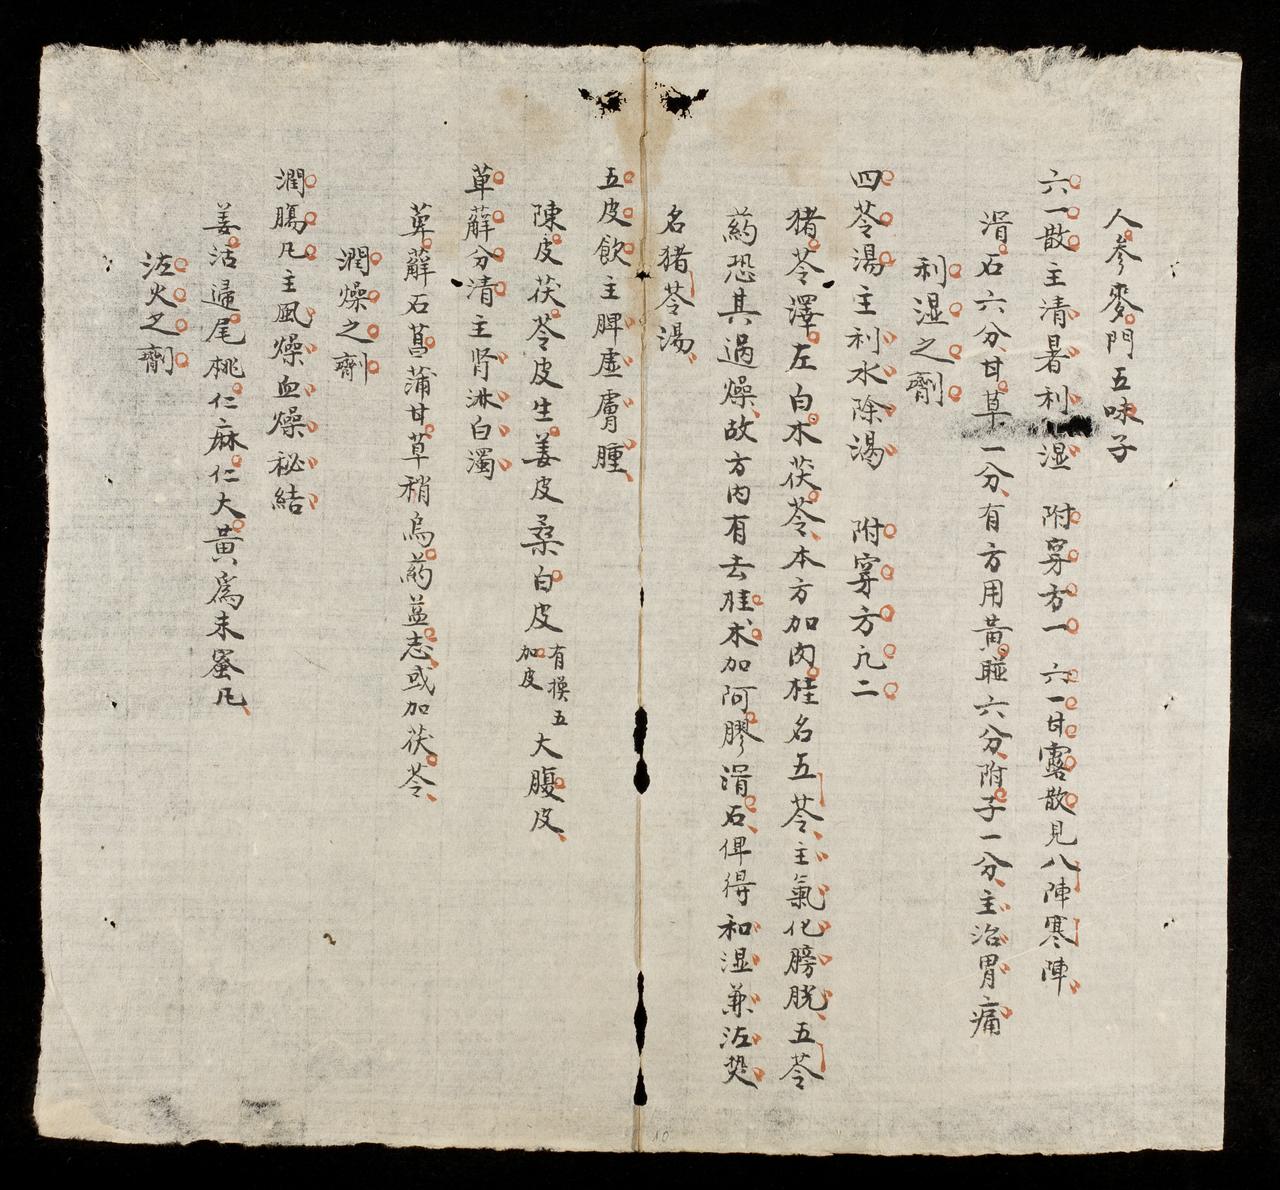 人參麥門五味子
六一散主清暑利湿 附穿方一 六一甘露散見八陣寒陣
滑石六分甘草一分有方用黃𦙶六分附子一分主治胃痛
利湿之劑
四苓湯主利水除湯 附穿方凢二
猪苓澤左白朮茯苓本方加肉桂名五苓主氣化膀胱五苓
葯恐其過燥故方内有去桂朮加阿膠滑石俾得和湿兼泣𤍠
名猪苓湯
五皮飲主脾虚膚腫
陳皮茯苓皮生姜皮桑白皮有換五加皮大腹皮
萆薢分清主肾淋白濁
萆薢石菖蒲甘草稍烏葯益志或加茯苓
潤燥之劑
潤膓凡主風燥血燥秘結
羌活歸尾桃仁麻仁大黃為末蜜凡
泣火之劑
10